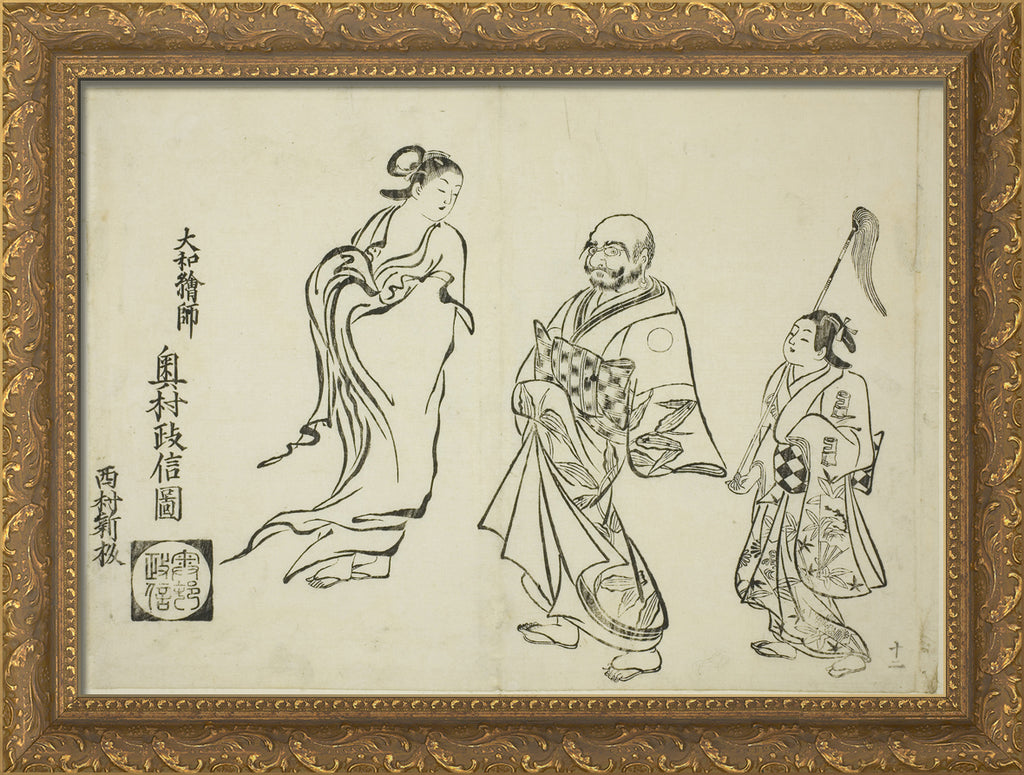 大和繪師
奥村政信圖
西村新板
奥邨
政信
十一